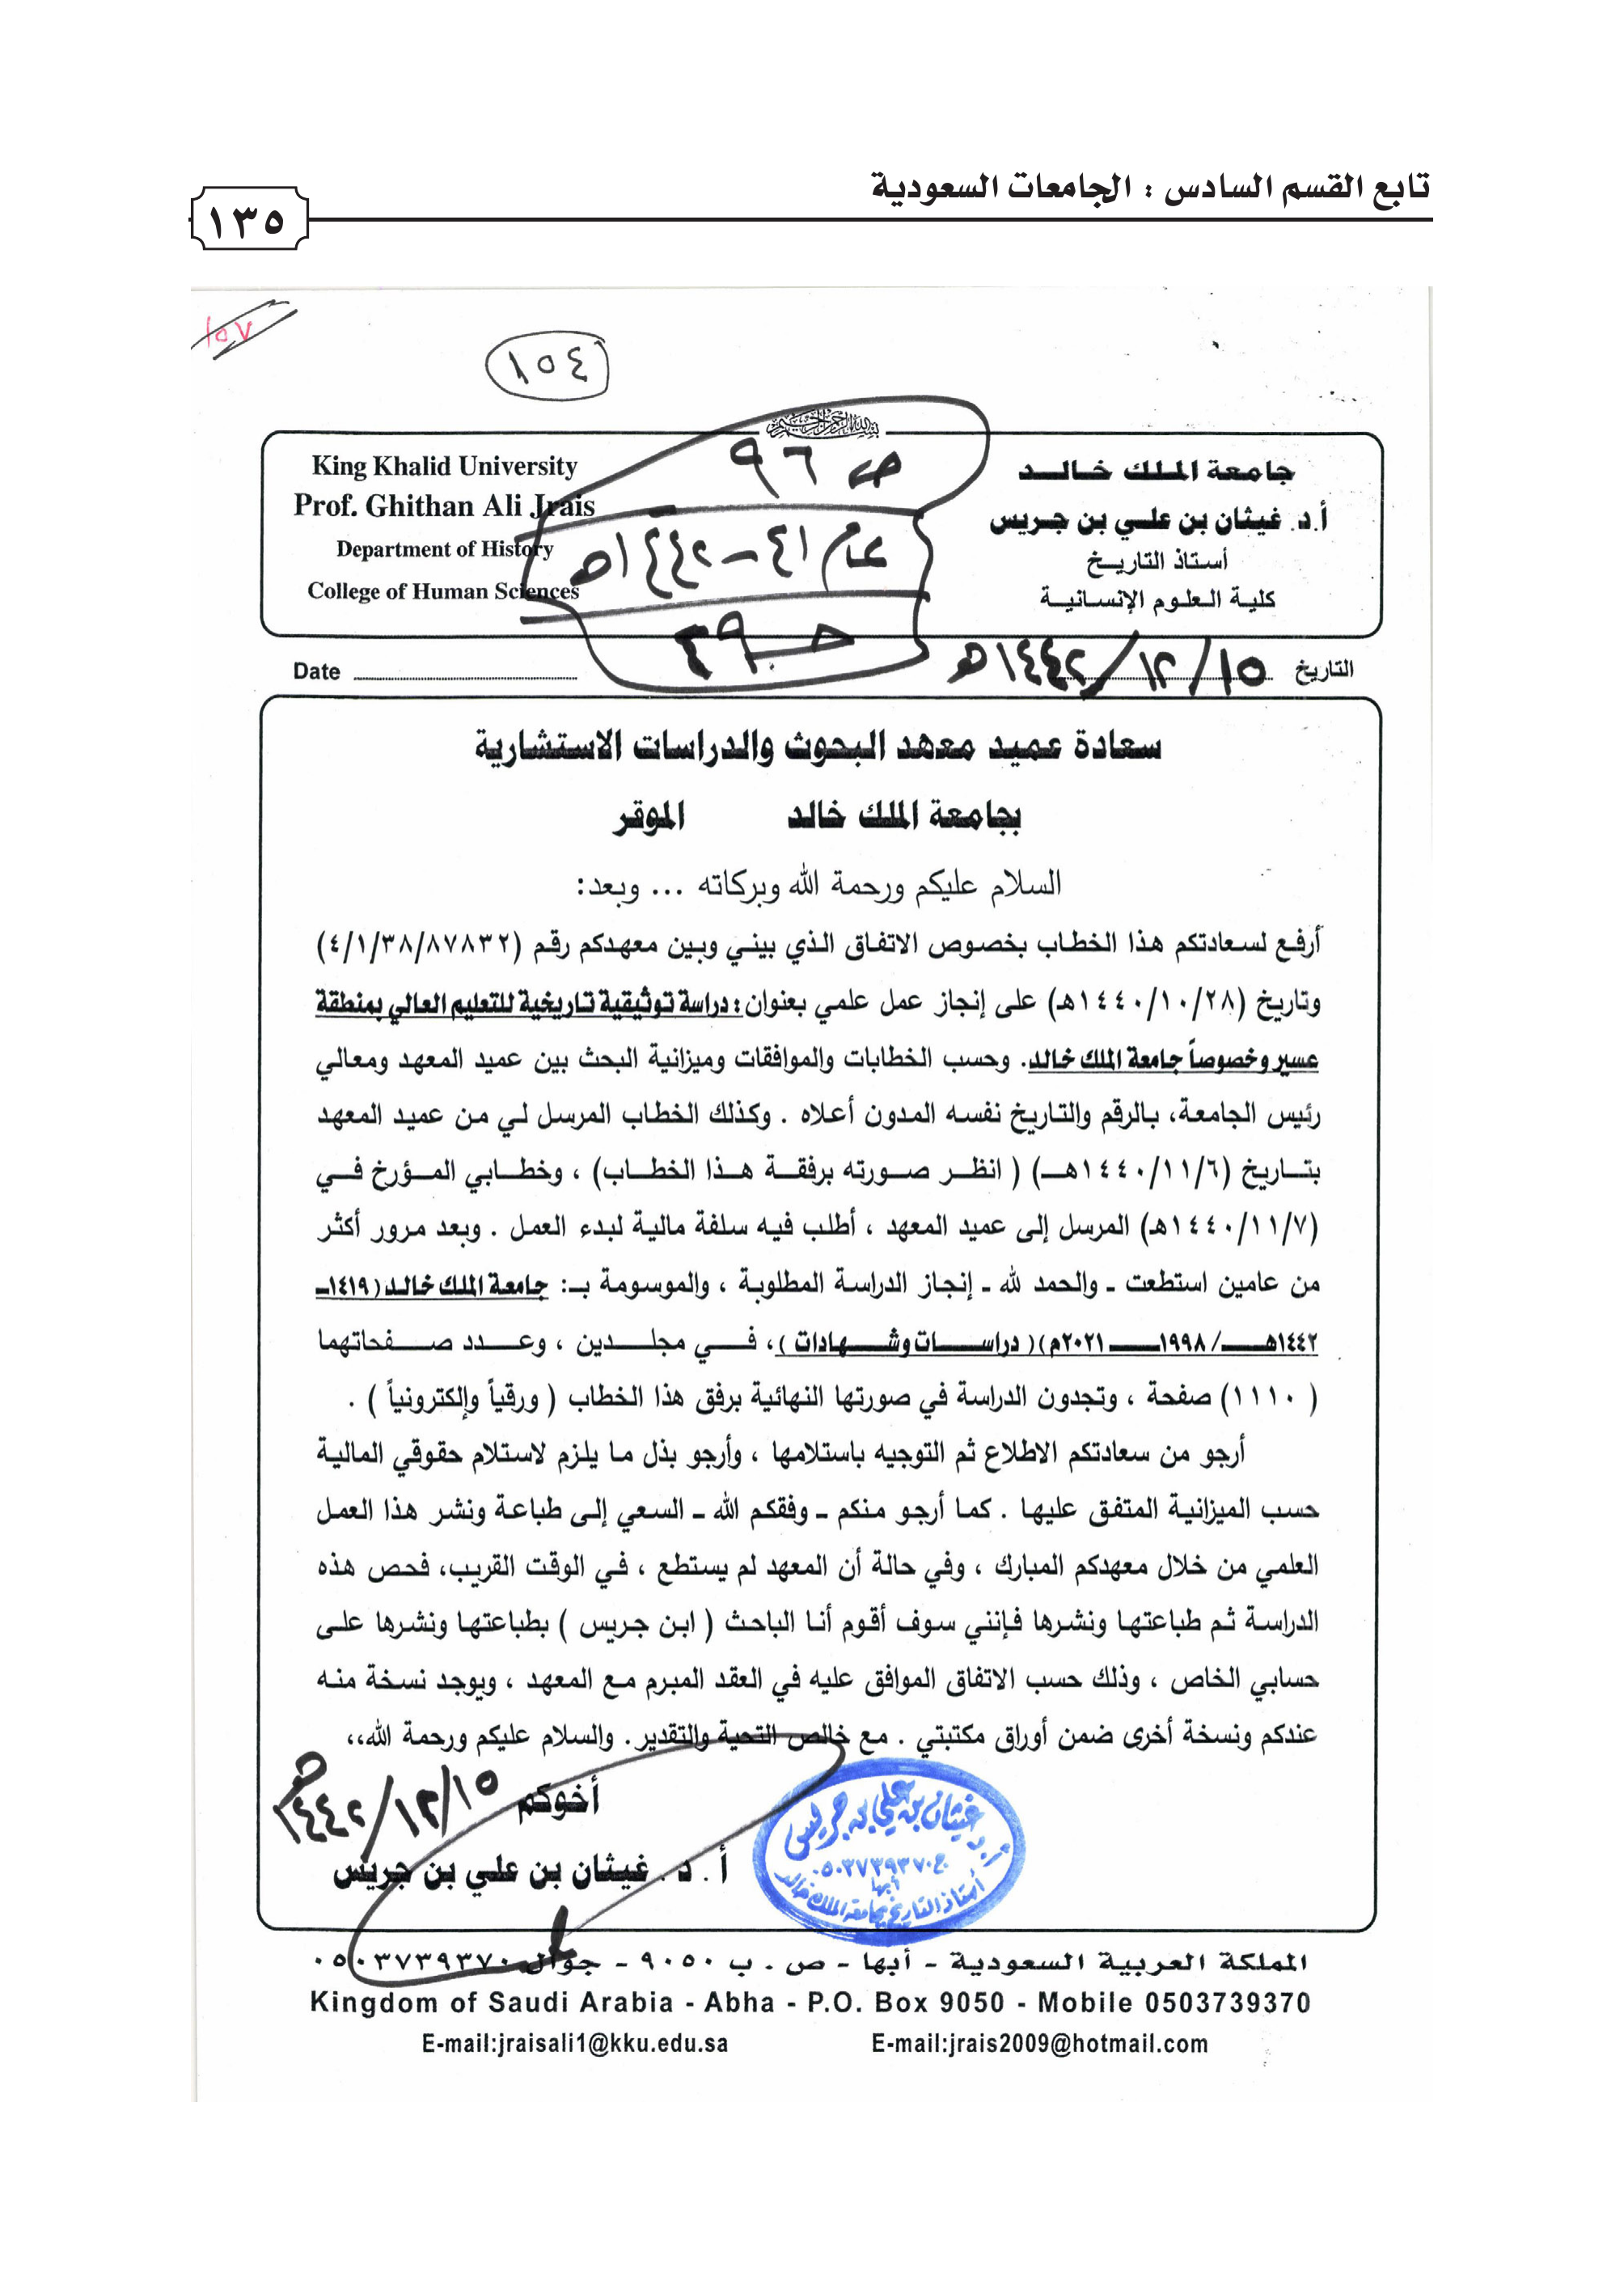 تابع القسم السادس : الجامعات السعودية
١٣٥
١٥٧
١٥٤
بسم الله الرحمن الرحيم
جامعة الملك خالد
أ.د. غيثان بن علي بن جريس
أستاذ التاريخ
كلية العلوم الإنسانية
King Khalid University
Prof. Ghithan Ali Jrais
Department of History
College of Human Sciences
ص ٩٦
عام ٤١ – ١٤٤٢هـ
التاريخ ١٥/١٢/١٤٤٢هـ
Date
سعادة عميد معهد البحوث والدراسات الاستشارية
بجامعة الملك خالد الموقر
السلام عليكم ورحمة الله وبركاته ... وبعد:
أرفع لسعادتكم هذا الخطاب بخصوص الاتفاق الذي بيني وبين معهدكم رقم (٤/١/٣٨/٨٧٨٣٢)
وتاريخ (١٤٤٠/١٠/٢٨هـ) على إنجاز عمل علمي بعنوان: دراسة توثيقية تاريخية للتعليم العالي بمنطقة
عسير وخصوصاً جامعة الملك خالد. وحسب الخطابات والموافقات وميزانية البحث بين عميد المعهد ومعالي
رئيس الجامعة، بالرقم والتاريخ نفسه المدون أعلاه . وكذلك الخطاب المرسل لي من عميد المعهد
بتاريخ (١٤٤٠/١١/٦هـ) ( انظر صورته برفقة هذا الخطاب) ، وخطابي المؤرخ في
(١٤٤٠/١١/٧هـ) المرسل إلى عميد المعهد ، أطلب فيه سلفة مالية لبدء العمل . وبعد مرور أكثر
من عامين استطعت ـ والحمد لله ـ إنجاز الدراسة المطلوبة ، والموسومة بـ: جامعة الملك خالد (١٤١٩ـ
١٤٤٢هـ/ ١٩٩٨ـ ٢٠٢١م) ( دراسات وشهادات )، في مجلدين ، وعدد صفحاتهما
( ١١١٠) صفحة ، وتجدون الدراسة في صورتها النهائية برفق هذا الخطاب ( ورقياً وإلكترونياً ) .
أرجو من سعادتكم الاطلاع ثم التوجيه باستلامها ، وأرجو بذل ما يلزم لاستلام حقوقي المالية
حسب الميزانية المتفق عليها . كما أرجو منكم ـ وفقكم الله ـ السعي إلى طباعة ونشر هذا العمل
العلمي من خلال معهدكم المبارك ، وفي حالة أن المعهد لم يستطع ، في الوقت القريب، فحص هذه
الدراسة ثم طباعتها ونشرها فإنني سوف أقوم أنا الباحث ( ابن جريس ) بطباعتها ونشرها على
حسابي الخاص ، وذلك حسب الاتفاق الموافق عليه في العقد المبرم مع المعهد ، ويوجد نسخة منه
عندكم ونسخة أخرى ضمن أوراق مكتبتي . مع خالص التحية والتقدير. والسلام عليكم ورحمة الله،،
أخوكم
١٥/١٢/١٤٤٢هـ
أ . د . غيثان بن علي بن جريس
أ.د غيثان بن علي بن جريس
ج ٠٥٠٣٧٣٩٣٧٠
أبها
أستاذ التاريخ بجامعة الملك خالد
المملكة العربية السعودية - أبها - ص . ب ٩٠٥٠ - جوال ٠٥٠٣٧٣٩٣٧٠
Kingdom of Saudi Arabia - Abha - P.O. Box 9050 - Mobile 0503739370
E-mail:jraisali1@kku.edu.sa E-mail:jrais2009@hotmail.com